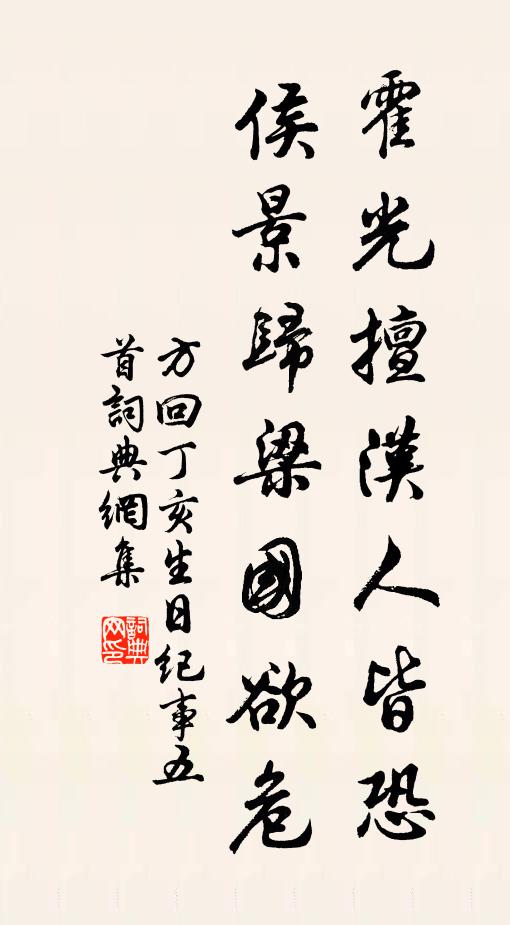 霍光擅漢人皆恐
侯景歸梁國欲危
方回丁亥生日纪事五
首詞典網集
詞典
网印